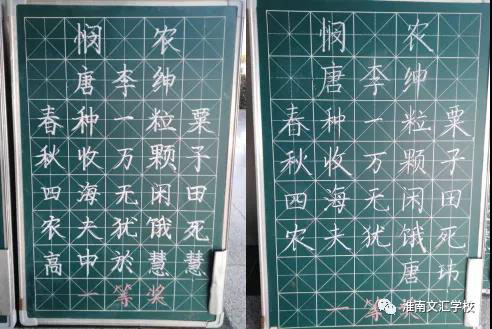 悯农
唐李绅
春种一粒粟
秋收万颗子
四海无闲田
农夫犹饿死
高中於慧慧
一等奖
悯农
唐李绅
春种一粒粟
秋收万颗子
四海无闲田
农夫犹饿死
唐玮
一等奖
淮南文汇学校